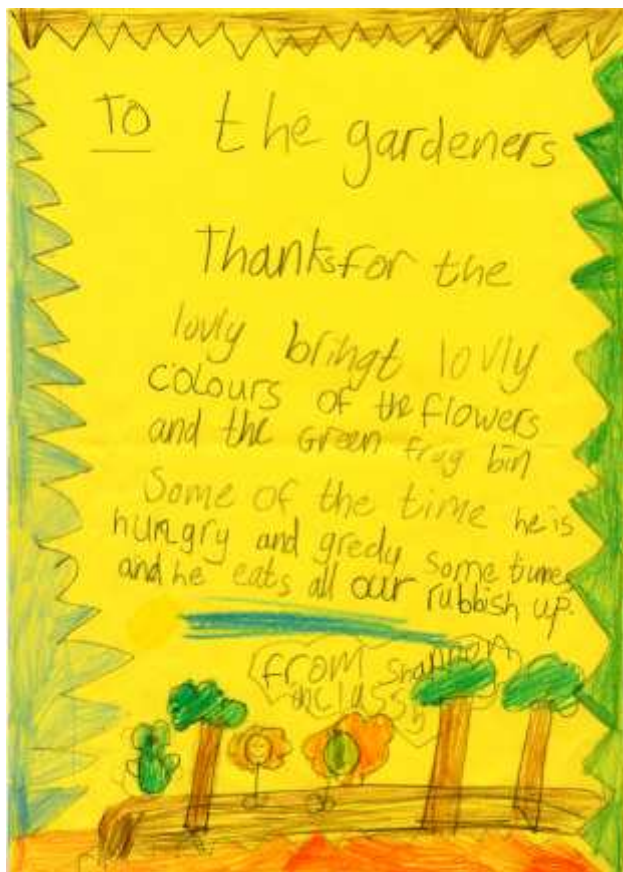 To the gardeners
Thanks for the
lovly brihgt lovly
colours of the flowers
and the Green frog bin
Some of the time he is
hungry and gredy some times
and he eats all our rubbish up.
from Shannon
in class